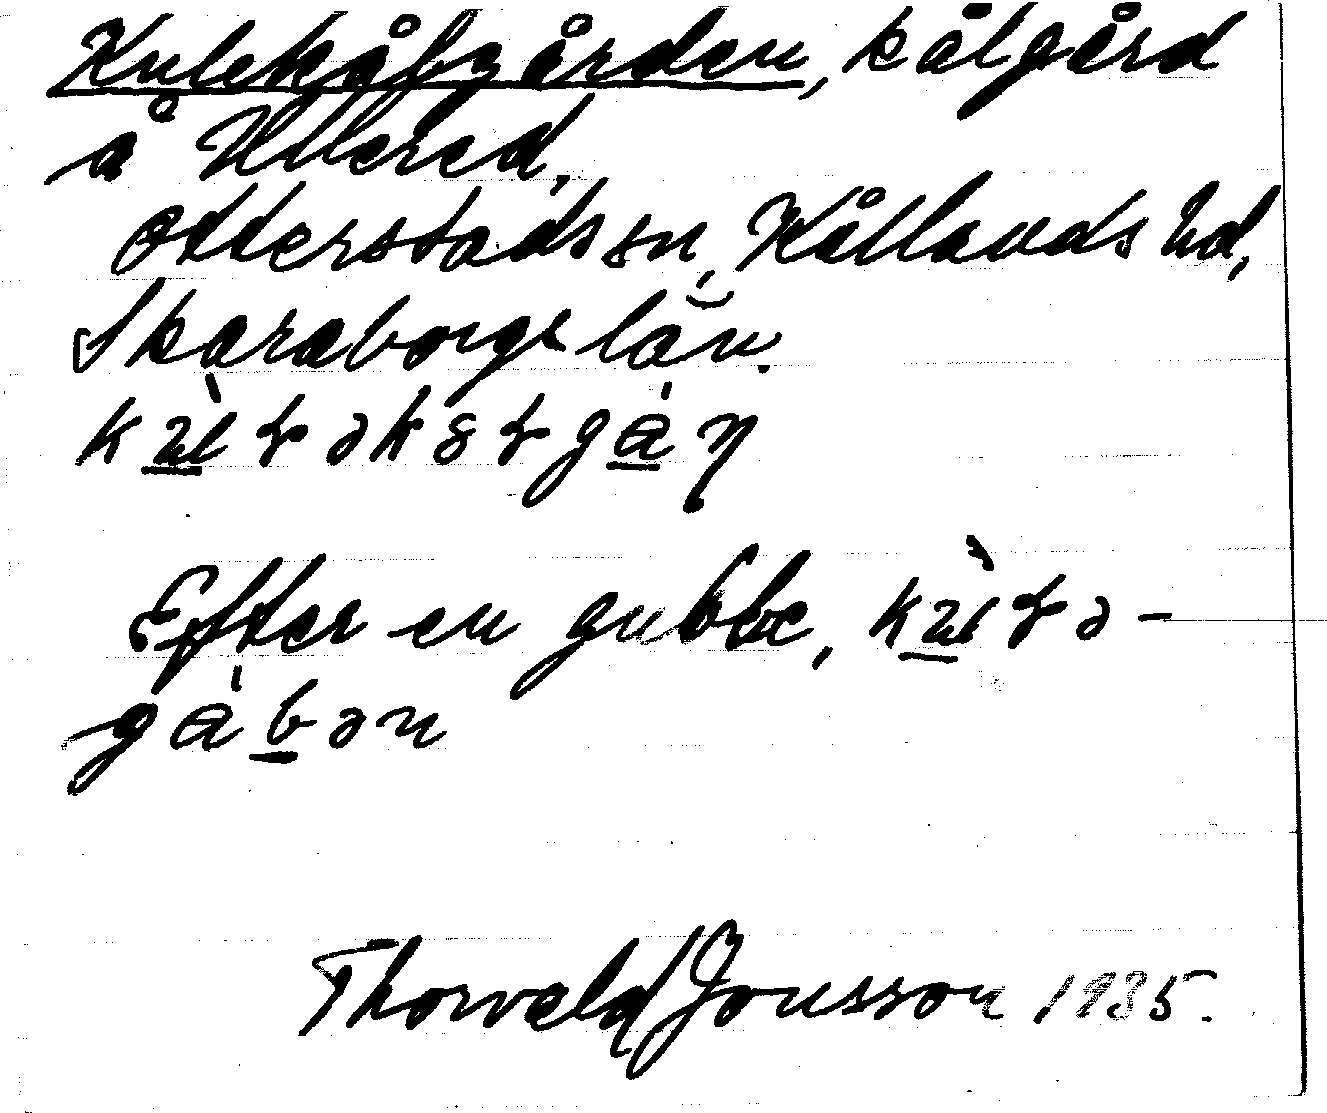 Kulekålsgården, kålgård
å Ullered,
Otterstads sn, Kållands hd,
Skaraborgs län.
Efter en gubbe,
Thorvald Jonsson 1935.